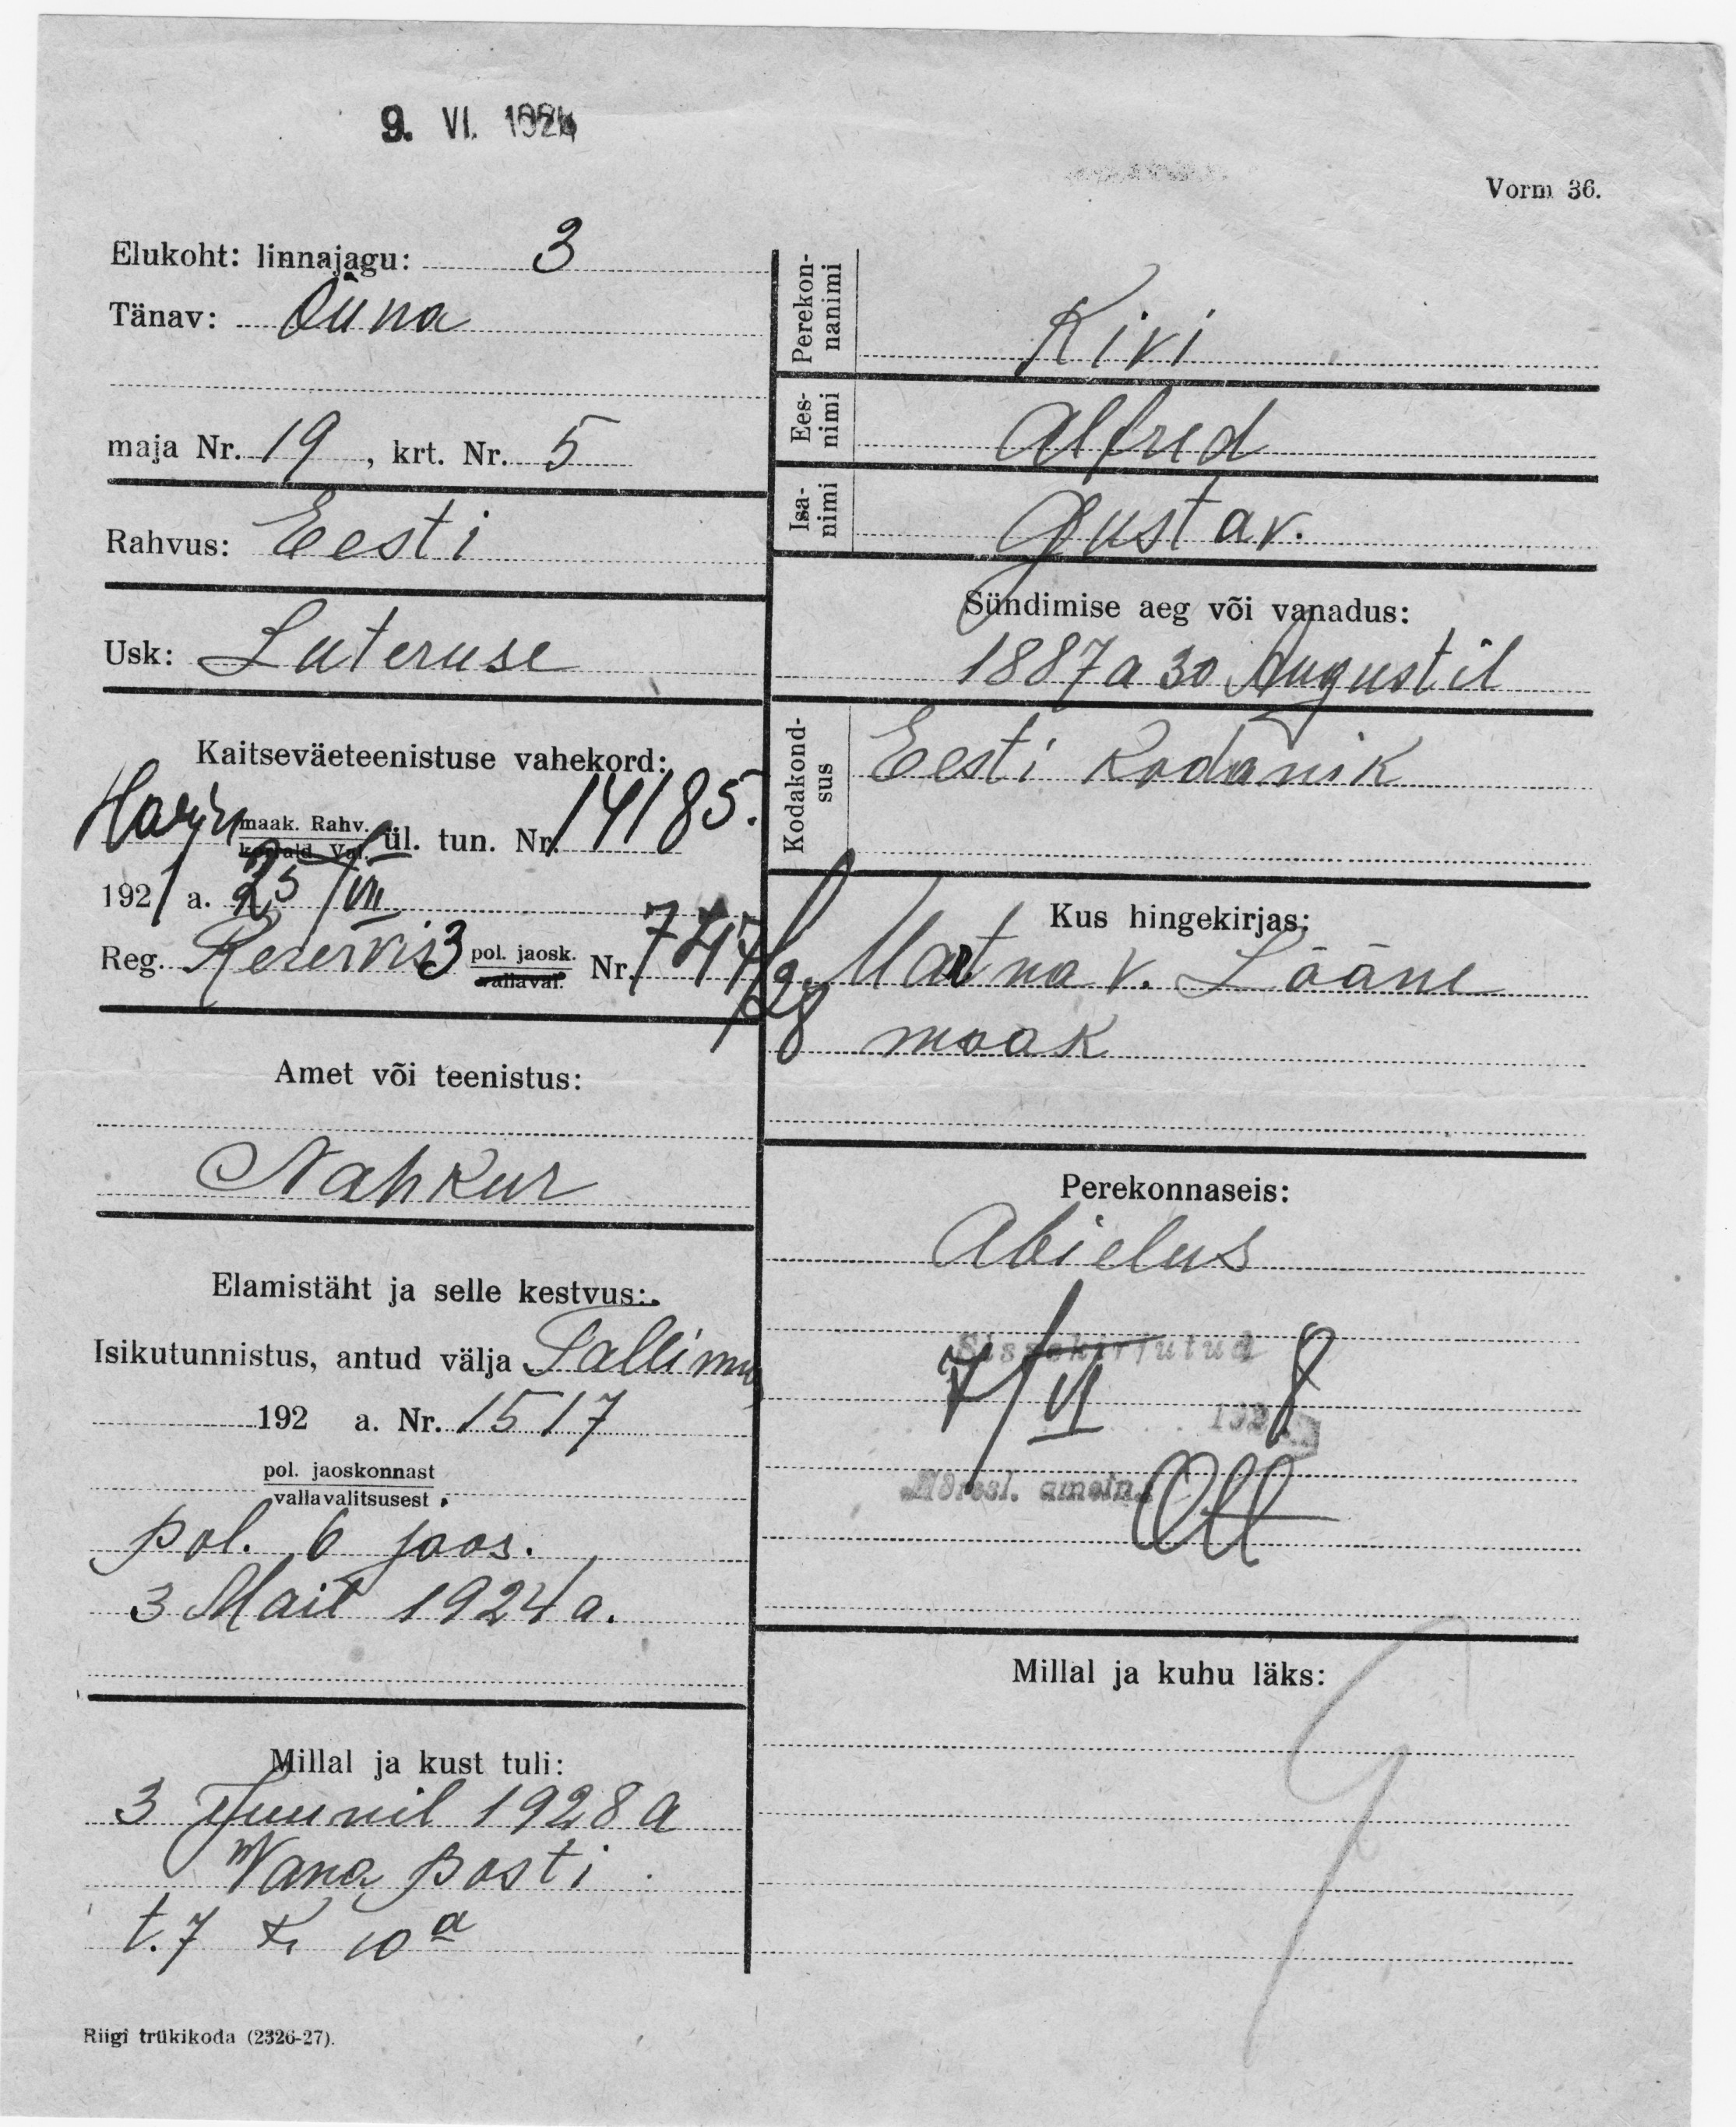 9. VI. 192
Vorm 36.
Elukoht: linnajagu: 3
Tänav: Õuna
maja Nr. 19, krt. Nr. 5
Rahvus: Eesti
Usk: Luteruse
Kaitseväeteenistuse vahekord:
Harju maak. Rahv. ül. tun. Nr. 14185.
1921 a. 25/VII
Reg. Reservis 3 pol. jaosk. vallaval. Nr. 747/g.
/28
Amet või teenistus:
Nahkur
Elamistäht ja selle kestvus:
Isikutunnistus, antud välja Tallinnas
192 a. Nr. 1517
pol. jaoskonnast
vallavalitsusest
pol. 6 jaos.
3 Mail 1924 a.
Millal ja kust tuli:
3 Juunil 1928 a
Wana posti
t. 7 k 10 a
Riigi trükikoda (2326-27).
Perekonnanimi
Kivi
Eesnimi
Alfred
Isanimi
Gustav.
Sündimise aeg või vanadus:
1887 a 30 Augustil
Kodakondsus
Eesti Kodanik
Kus hingekirjas:
Martna v. Lääne
maak
Perekonnaseis:
Abielus
Sissekirjutud
7/VI 1928
Ott
Millal ja kuhu läks: